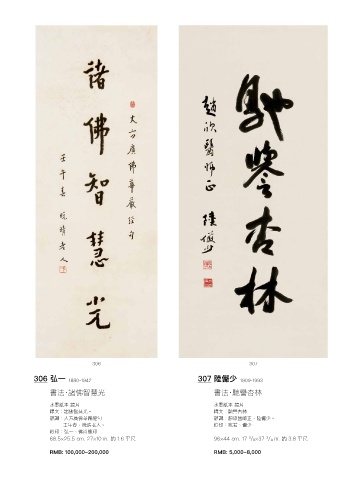 諸佛智慧光
大方廣佛華嚴經句
壬午春 晚晴老人
馳譽杏林
趙欣醫師正 陸儼少
306
307
306 弘一 1880-1942
書法·諸佛智慧光
水墨紙本 鏡片
釋文:諸佛智慧光。
款識:大方廣佛華嚴經句
壬午春,晚晴老人。
鈐印:弘一、佛肖形印
68.5×25.5 cm. 27×10 in. 約 1.6 平尺
RMB: 100,000-200,000
307 陸儼少 1909-1993
書法·馳譽杏林
水墨紙本 鏡片
釋文:馳譽杏林
款識:趙欣醫師正,陸儼少。
96×44 cm. 約 3.8 平尺
RMB: 5,000-8,000